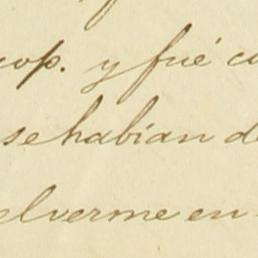 cop. y fué co
se habian de
elverme en